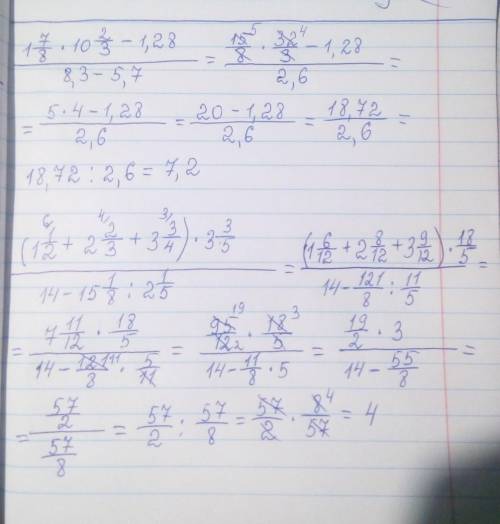 (1 7/8 · 10 2/3 − 1,28) / (8,3 − 5,7) = (15⁵/8 · 32⁴/3 − 1,28) / 2,6 =
= (5·4 − 1,28) / 2,6 = (20 − 1,28) / 2,6 = 18,72 / 2,6 =
18,72 : 2,6 = 7,2
((1 1/2 ⁶ + 2 2/3 ⁴ + 3 3/4 ³) · 3 3/5) / (14 − 15 1/8 : 2 1/5) = ((1 6/12 + 2 8/12 + 3 9/12) · 18/5) / (14 − 121/8 : 11/5) =
= (7 11/12 · 18/5) / (14 − 121¹¹/8 · 5/11) = (95¹⁹/12₂ · 18³/5) / (14 − 11/8 · 5) = (19/2 · 3) / (14 − 55/8) =
= (57/2) / (57/8) = 57/2 : 57/8 = 57/2 · 8⁴/57 = 4